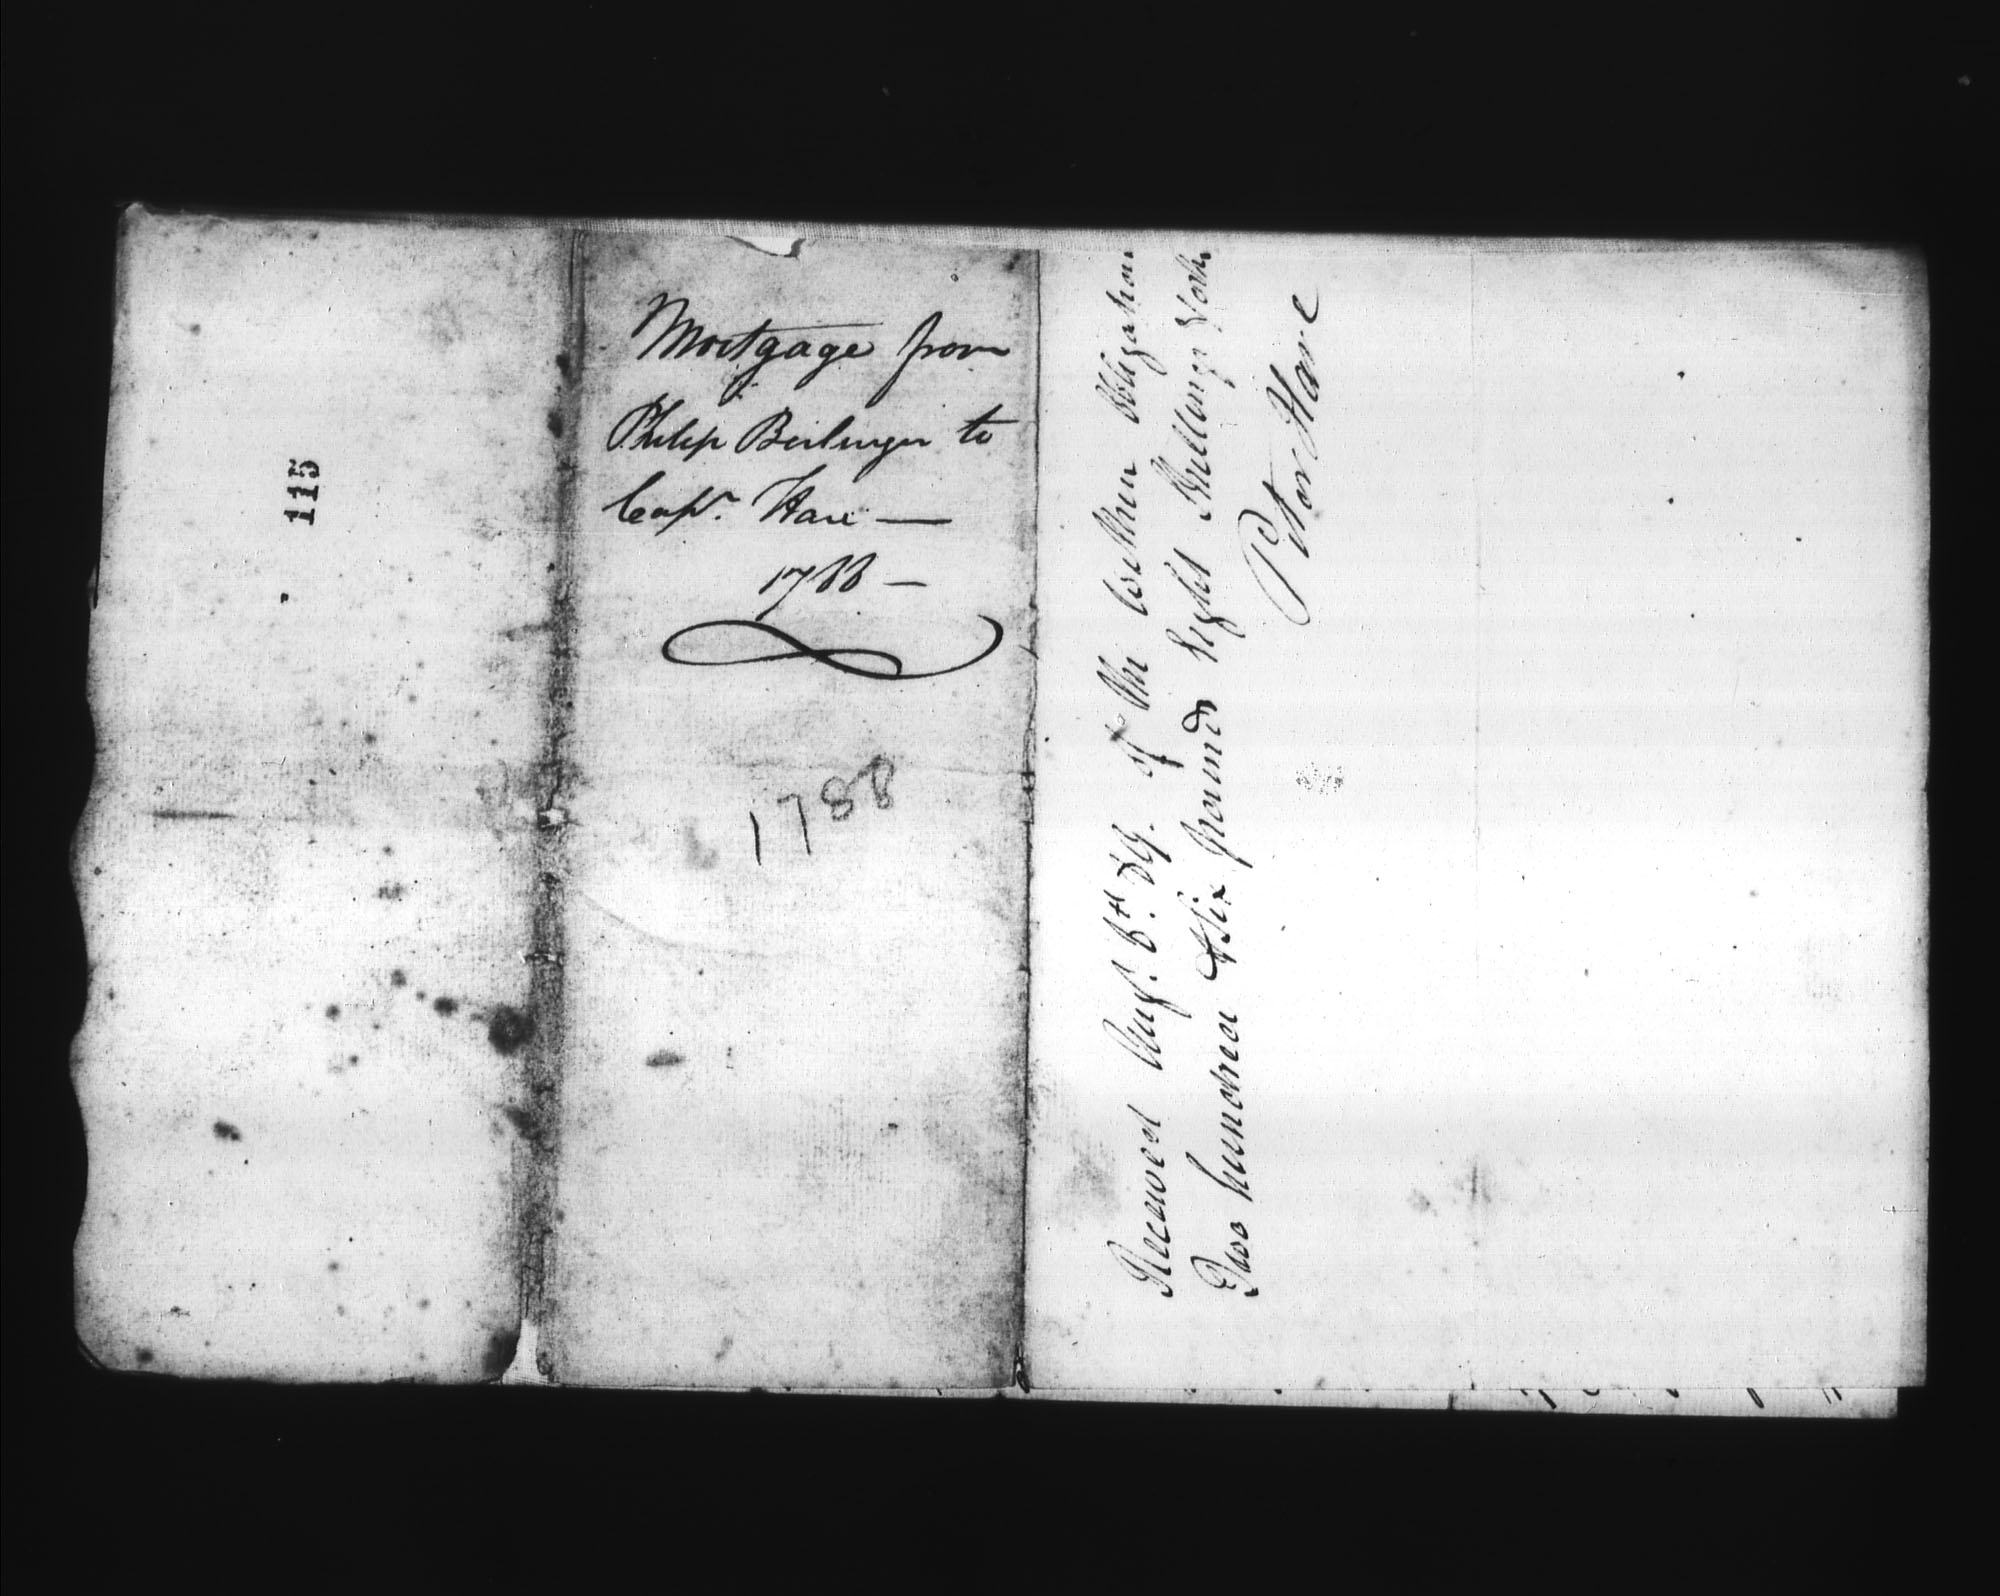 115
Mortgage from
Philip Berlinger to
Capt. Hare —
1788 —
1788
Received Augt. 6th 89. of the within obligation
Two hundred & Six pounds Eight Shillings York
Peter Hare